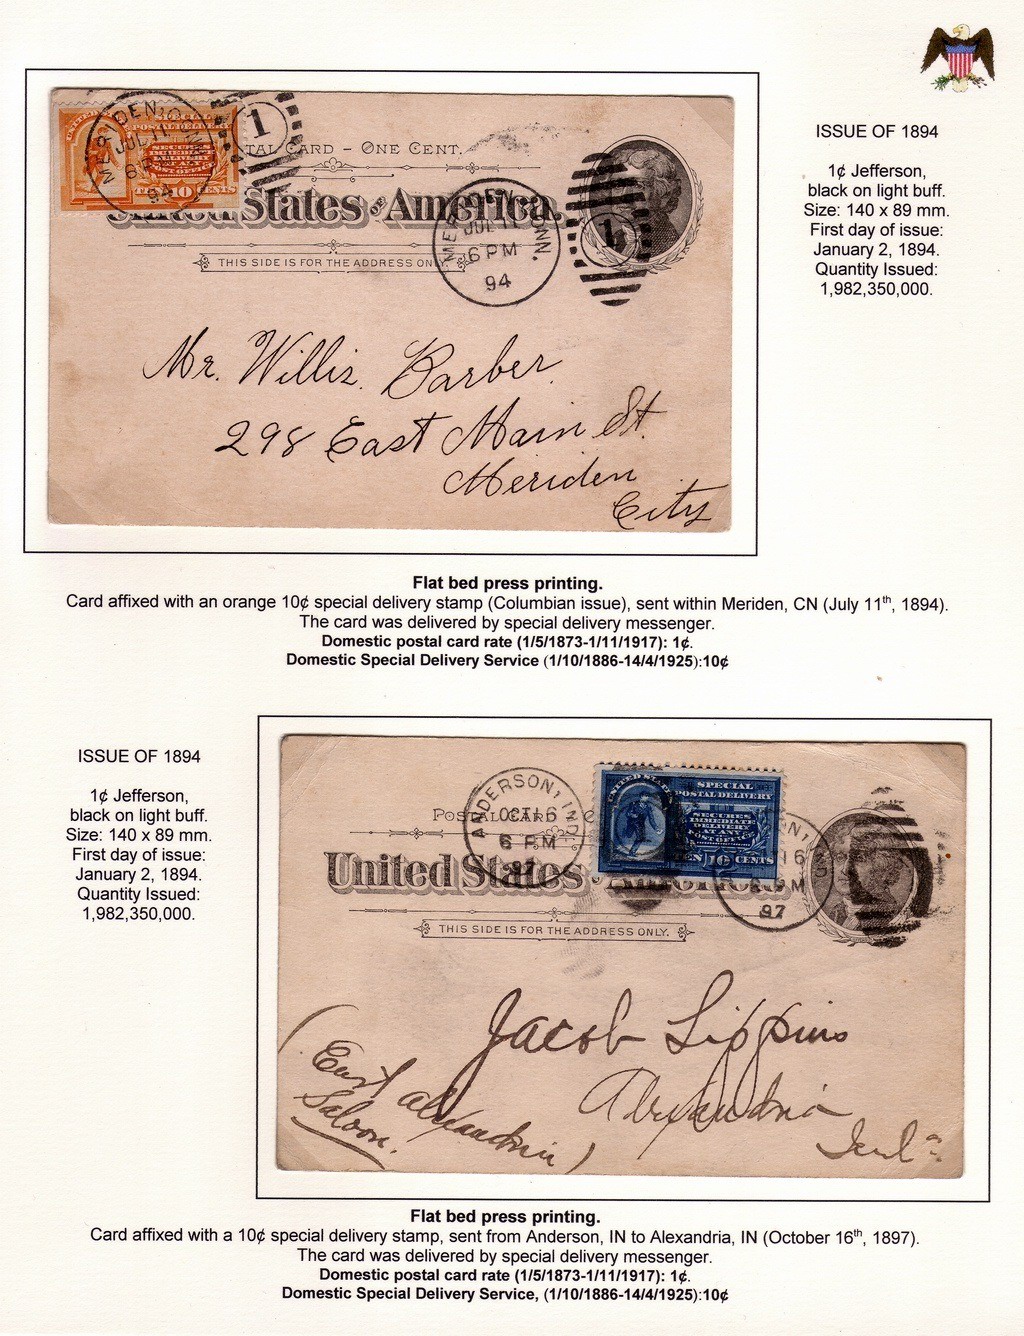 ISSUE OF 1894
1¢ Jefferson,
black on light buff.
Size: 140 x 89 mm.
First day of issue:
January 2, 1894.
Quantity Issued:
1,982,350,000.
UNITED
SPECIAL
POSTAL DELIVERY
SECURES
IMMEDIATE
DELIVERY
AT ANY
POST OFFICE
10 CENTS
MERIDEN,
JUL 11
6 P
94
1
TAL CARD – ONE CENT.
United States OF America.
THIS SIDE IS FOR THE ADDRESS ONLY.
MERIDEN, CONN.
JUL 11
6 PM
94
1
Mr. Willis. Barber.
298 East Main St.
Meriden
City
Flat bed press printing.
Card affixed with an orange 10¢ special delivery stamp (Columbian issue), sent within Meriden, CN (July 11th, 1894).
The card was delivered by special delivery messenger.
Domestic postal card rate (1/5/1873-1/11/1917): 1¢.
Domestic Special Delivery Service (1/10/1886-14/4/1925):10¢
ISSUE OF 1894
1¢ Jefferson,
black on light buff.
Size: 140 x 89 mm.
First day of issue:
January 2, 1894.
Quantity Issued:
1,982,350,000.
ANDERSON, IND
OCT 16
6 PM
97
POSTAL CARD
UNITED STATES
SPECIAL
POSTAL DELIVERY
SECURES
IMMEDIATE
DELIVERY
AT ANY
POST OFFICE
TEN 10 CENTS
16
PM
97
United States America
THIS SIDE IS FOR THE ADDRESS ONLY.
Jacob Lippins
Alexandria
(East Alexandria)
Saloon.
Flat bed press printing.
Card affixed with a 10¢ special delivery stamp, sent from Anderson, IN to Alexandria, IN (October 16th, 1897).
The card was delivered by special delivery messenger.
Domestic postal card rate (1/5/1873-1/11/1917): 1¢.
Domestic Special Delivery Service, (1/10/1886-14/4/1925):10¢